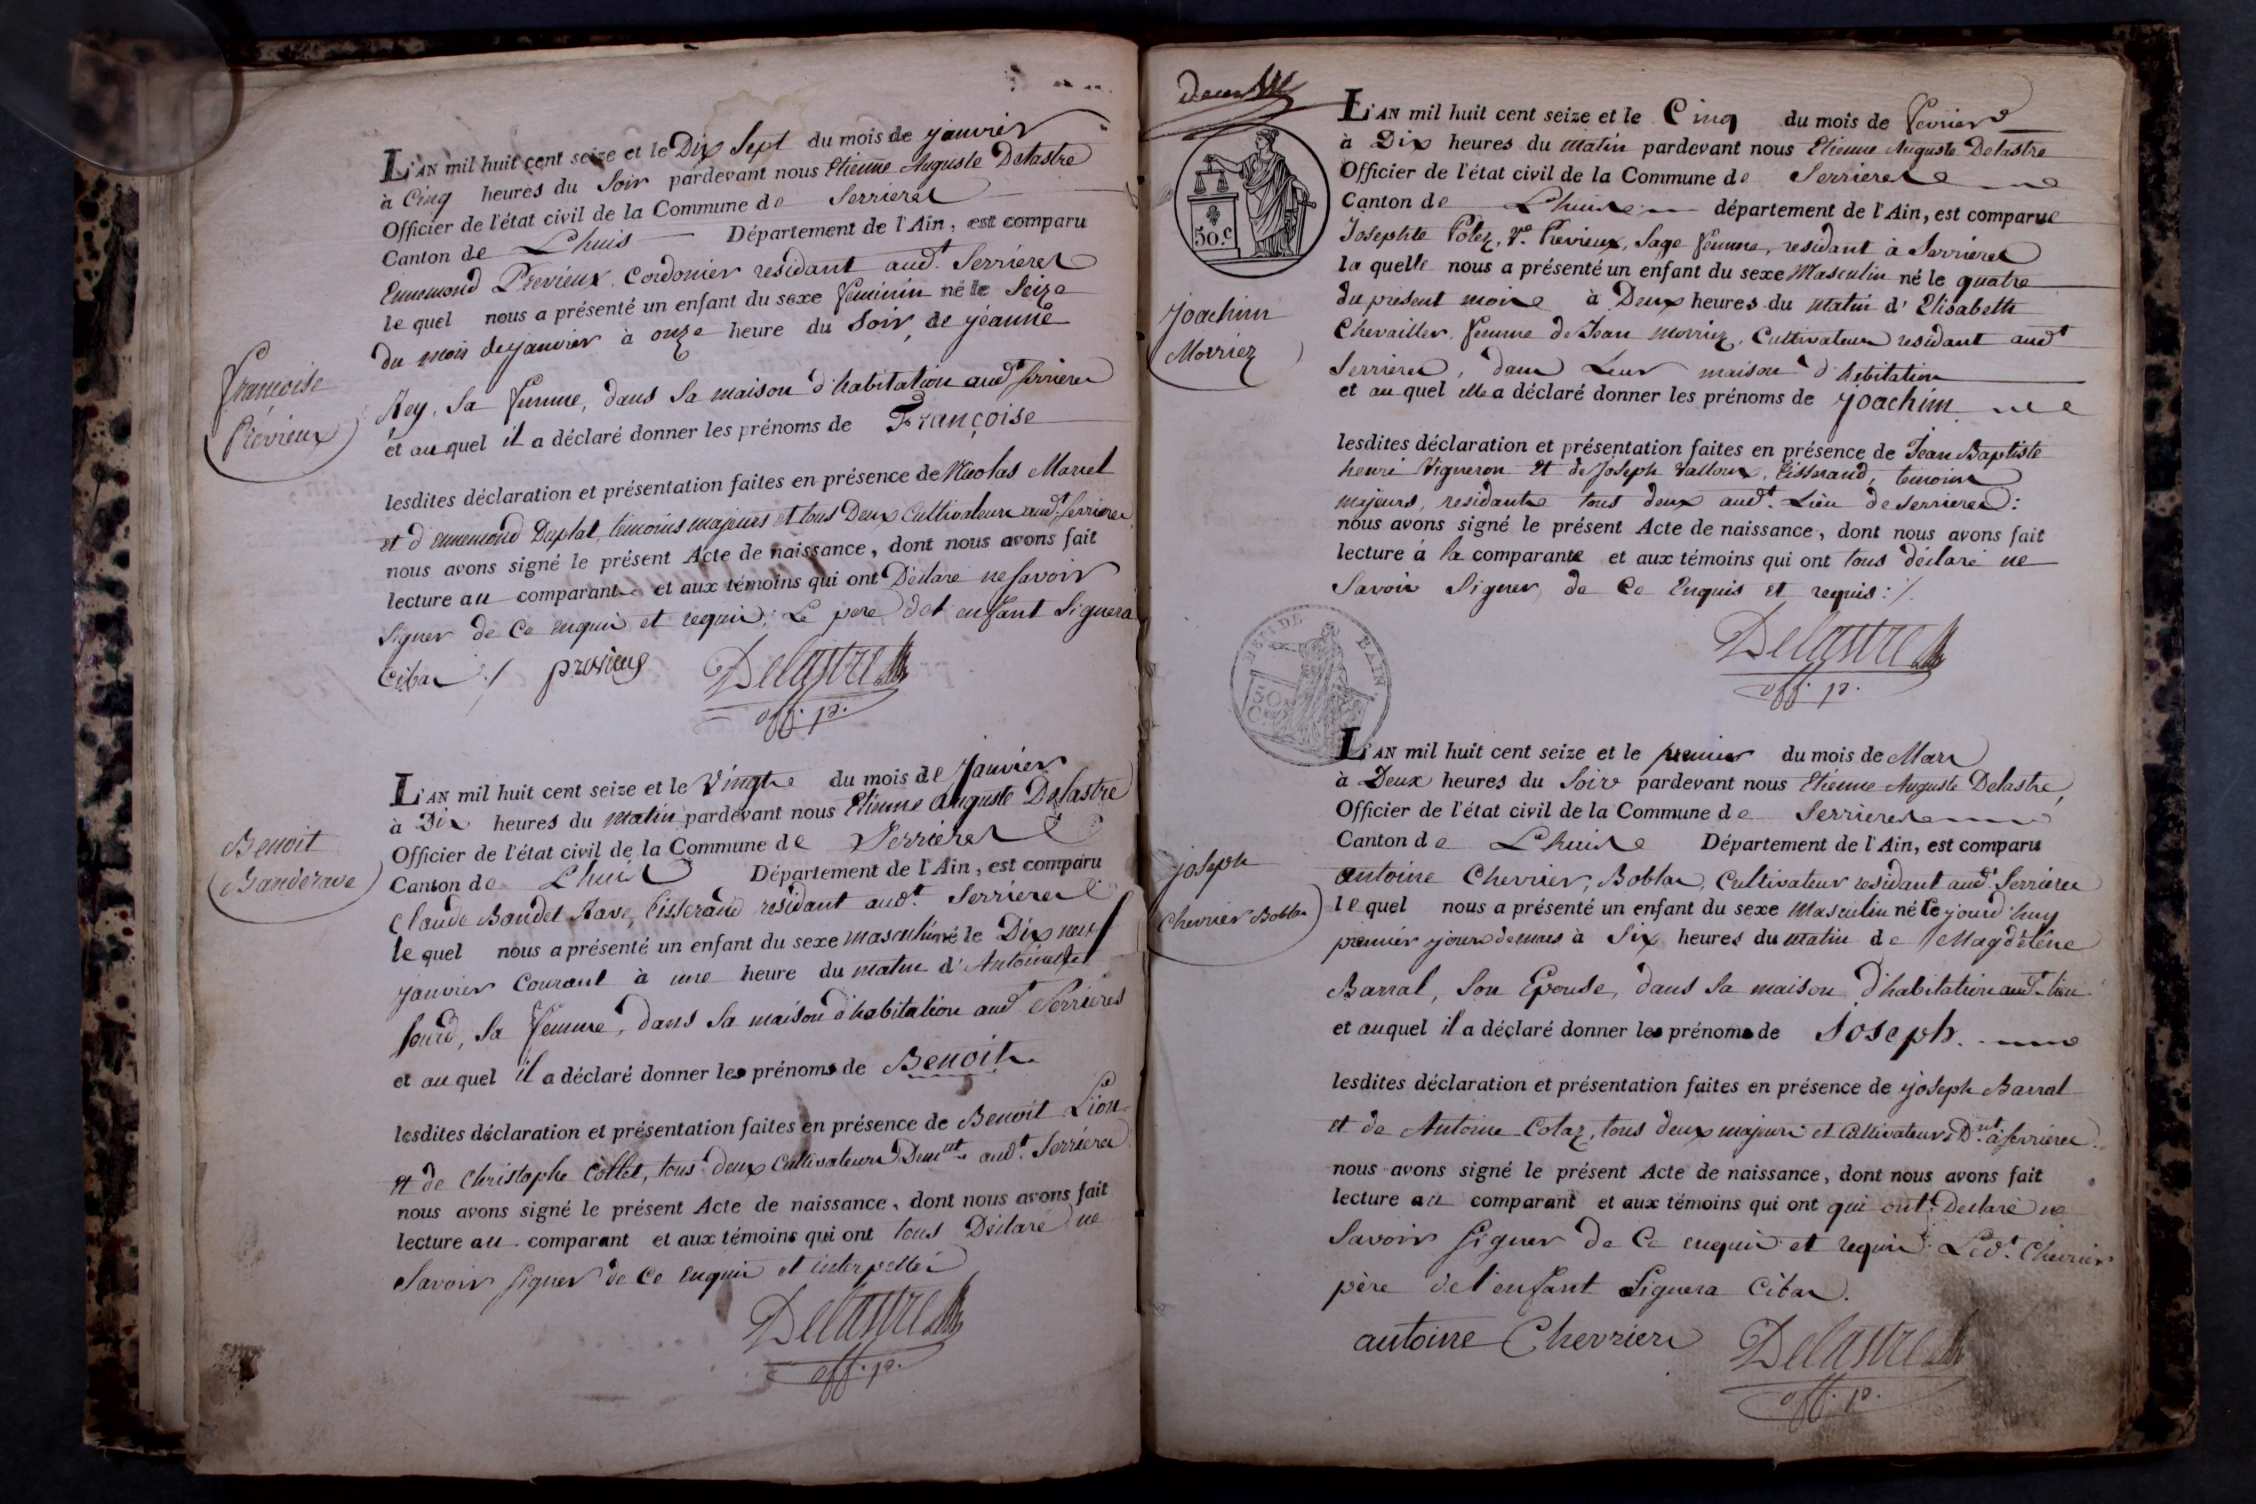 L'AN mil huit cent seize et le Dix Sept du mois de janvier
à Cinq heures du Soir pardevant nous Etienne Auguste Delastre
Officier de l'état civil de la Commune de Serrieres
Canton de Lhuis Département de l'Ain, est comparu
Ennemond Previeux, Cordonier residant aud.t Serrieres
le quel nous a présenté un enfant du sexe feminin né le Seize
du mois de janvier à onze heure du Soir, de jeanne
Rey, Sa femme, dans Sa maison d'habitation aud.t Serrieres
et au quel il a déclaré donner les prénoms de Françoise
lesdites déclaration et présentation faites en présence de Nicolas Marcel
et d'Ennemond Deplat, temoins majeurs et tous Deux Cultivateurs aud.t Serrieres
nous avons signé le présent Acte de naissance, dont nous avons fait
lecture au comparant et aux témoins qui ont Déclare ne Savoir
Signer de Ce enquis et requis; Le pere de l'enfant Signera
Cibas ./. previeux Delastre
off. p.
Françoise
Previeux
L'AN mil huit cent seize et le Vingt du mois de Janvier
à Dix heures du Matin pardevant nous Etienne Auguste Delastre
Officier de l'état civil de la Commune de Serrieres
Canton de Lhuis Département de l'Ain, est comparu
Claude Bandet Rave, tisserand residant aud.t Serrieres
le quel nous a présenté un enfant du sexe masculin né le Dix neuf
janvier Courant à une heure du matin d'Antoinette
Sourd, Sa femme, dans Sa maison d'habitation aud.t Serrieres
et au quel il a déclaré donner les prénoms de Benoit
lesdites déclaration et présentation faites en présence de Benoit Lion
et de Christophe Collet, tous deux Cultivateurs Dem.nt aud.t Serrieres
nous avons signé le présent Acte de naissance, dont nous avons fait
lecture au comparant et aux témoins qui ont tous Déclaré ne
Savoir Signer de Ce Enquis et interpellés
Delastre
off. p.
Benoit
Banderave
50.c
L'AN mil huit cent seize et le Cinq du mois de fevrier
à Dix heures du Matin pardevant nous Etienne Auguste Delastre
Officier de l'état civil de la Commune de Serrieres
Canton de Lhuis département de l'Ain, est comparue
Josephte Polez, V.e Previeux, Sage femme, residant à Serrieres
la quelle nous a présenté un enfant du sexe Masculin né le quatre
du présent mois à Deux heures du Matin d'Elisabeth
Chevailler, femme de Jean Morriez, Cultivateur residant aud.t
Serrieres, dans Leur maison d'habitation
et au quel elle a déclaré donner les prénoms de Joachim
lesdites déclaration et présentation faites en présence de Jean Baptiste
henri Vigneron et de Joseph Vallour, tisserand, temoins
majeurs, residants tous deux aud.t Lieu de Serrieres:
nous avons signé le présent Acte de naissance, dont nous avons fait
lecture à la comparante et aux témoins qui ont tous déclaré ne
Savoir Signer, de Ce Enquis et requis: ./.
Delastre
off. p.
Joachim
Morriez
50
L'AN mil huit cent seize et le premier du mois de Mars
à Deux heures du Soir pardevant nous Etienne Auguste Delastre,
Officier de l'état civil de la Commune de Serrieres
Canton de Lhuis Département de l'Ain, est comparu
Antoine Chevrier, Boblas, Cultivateur residant aud.t Serrieres
le quel nous a présenté un enfant du sexe Masculin né le jourd'huy
premier jour de mars à Six heures du Matin de Magdelêne
Barral, Son Epouse, dans Sa maison d'habitation aud.t lieu
et au quel il a déclaré donner les prénoms de Joseph.
lesdites déclaration et présentation faites en présence de joseph Barral
et de Antoine Colaz, tous deux majeurs et Cultivateurs D.nt à Serrieres.
nous avons signé le présent Acte de naissance, dont nous avons fait
lecture au comparant et aux témoins qui ont qui ont Declaré ne
Savoir Signer de Ce enquis et requis; Led.t Chevrier
père de l'enfant Signera Cibas.
antoine Chevrier Delastre
off. p.
joseph
Chevrier Boblas